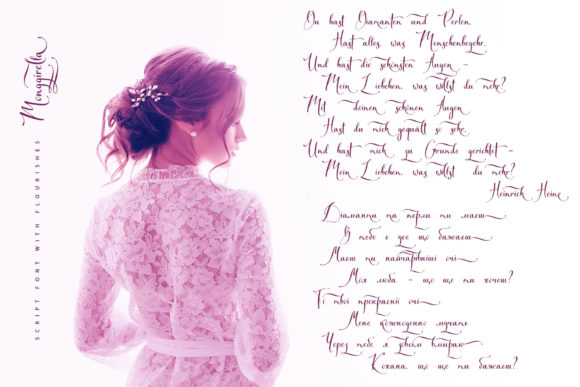 Monggirella
SCRIPT FONT WITH FLOURISHES
Du hast Diamanten und Perlen,
Hast alles, was Menschenbegehr,
Und hast die schönsten Augen –
Mein Liebchen, was willst du mehr?
Mit deinen schönen Augen
Hast du mich gequält so sehr,
Und hast mich zu Grunde gerichtet –
Mein Liebchen, was willst du mehr?
Heinrich Heine
Діаманти та перли ти маєш
В тебе є усе що бажаєш
Маєш ти найчарівніші очі
Моя люба – що ще ти хочеш?
Ті твої прекраснії очі
Мене щоночі мучать
Через тебе я зовсім вмираю
Кохана, що ще ти бажаєш?